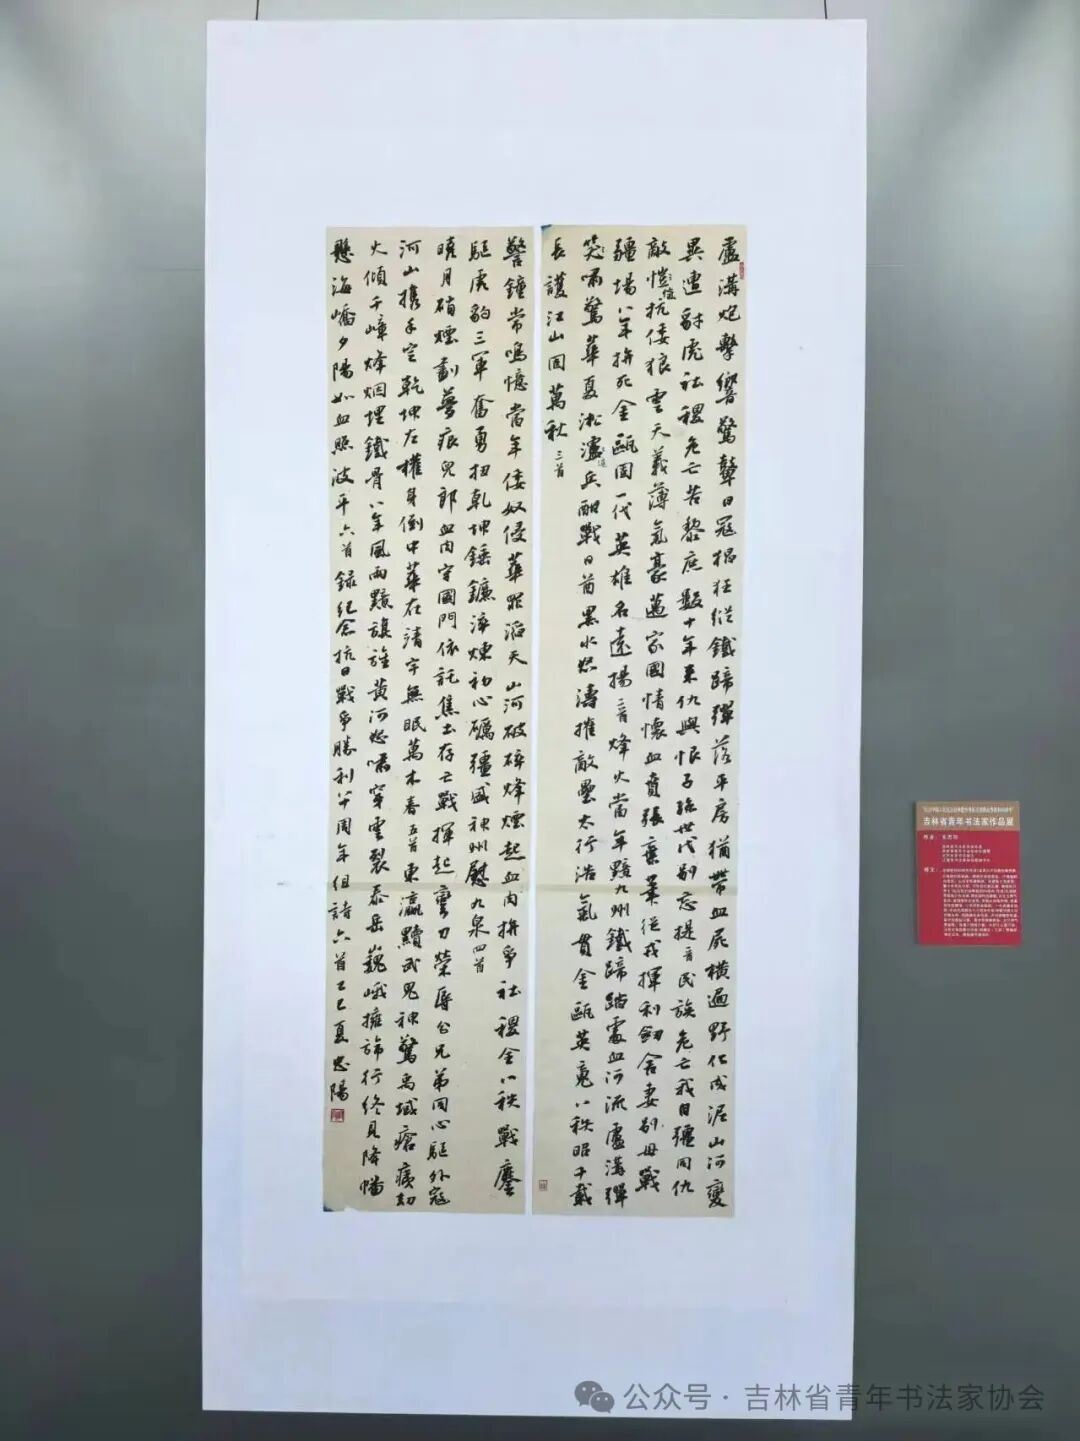 盧溝炮擊響驚聾日寇猖狂縱鐵蹄彈落平房猶帶血屍橫遍野化成泥山河變
異遭豺虎社稷危亡苦黎庶數十年来仇與恨子孫世代别忘提一首民族危亡我自疆同仇
敵愾抗倭狼雲天義薄氣豪邁家國情懷血賁張棄筆從戎揮利劍舍妻別母戰
疆場八年拚死金甌固一代英雄名遠揚二首烽火當年黯九州鐵蹄踏處血河流盧溝彈
哭嘯驚華夏淞滬兵酣戰日酋黑水怒濤摧敵壘太行浩氣貫金甌英魂八秩昭千載
長護江山固萬秋三首
警鐘常鳴憶當年倭奴侵華罪滔天山河破碎烽煙起血肉拚爭社稷全八秩戰鏖
驅虎豹三軍奮勇扭乾坤錘鐮淬煉初心礪疆盛神州慰九泉四首
曉月硝煙劃夢痕兒郎血肉守國門依託焦土存亡戰揮起寶刀榮辱公兄弟同心驅外寇
河山携手定乾坤左權身倒中華在清宇無眠萬木春五首東瀛黷武鬼神驚禹域瘡痍劫
火傾千嶂烽烟埋鐵骨八年風雨黯旗旌黄河怒嘯穿雲裂泰岳巍峨擁旆行終見降幡
懸海嶠夕陽如血照波平六首録紀念抗日戰爭勝利八十周年組詩六首乙巳夏忠陽
吉林省青年书法家作品展
公众号·吉林省青年书法家协会